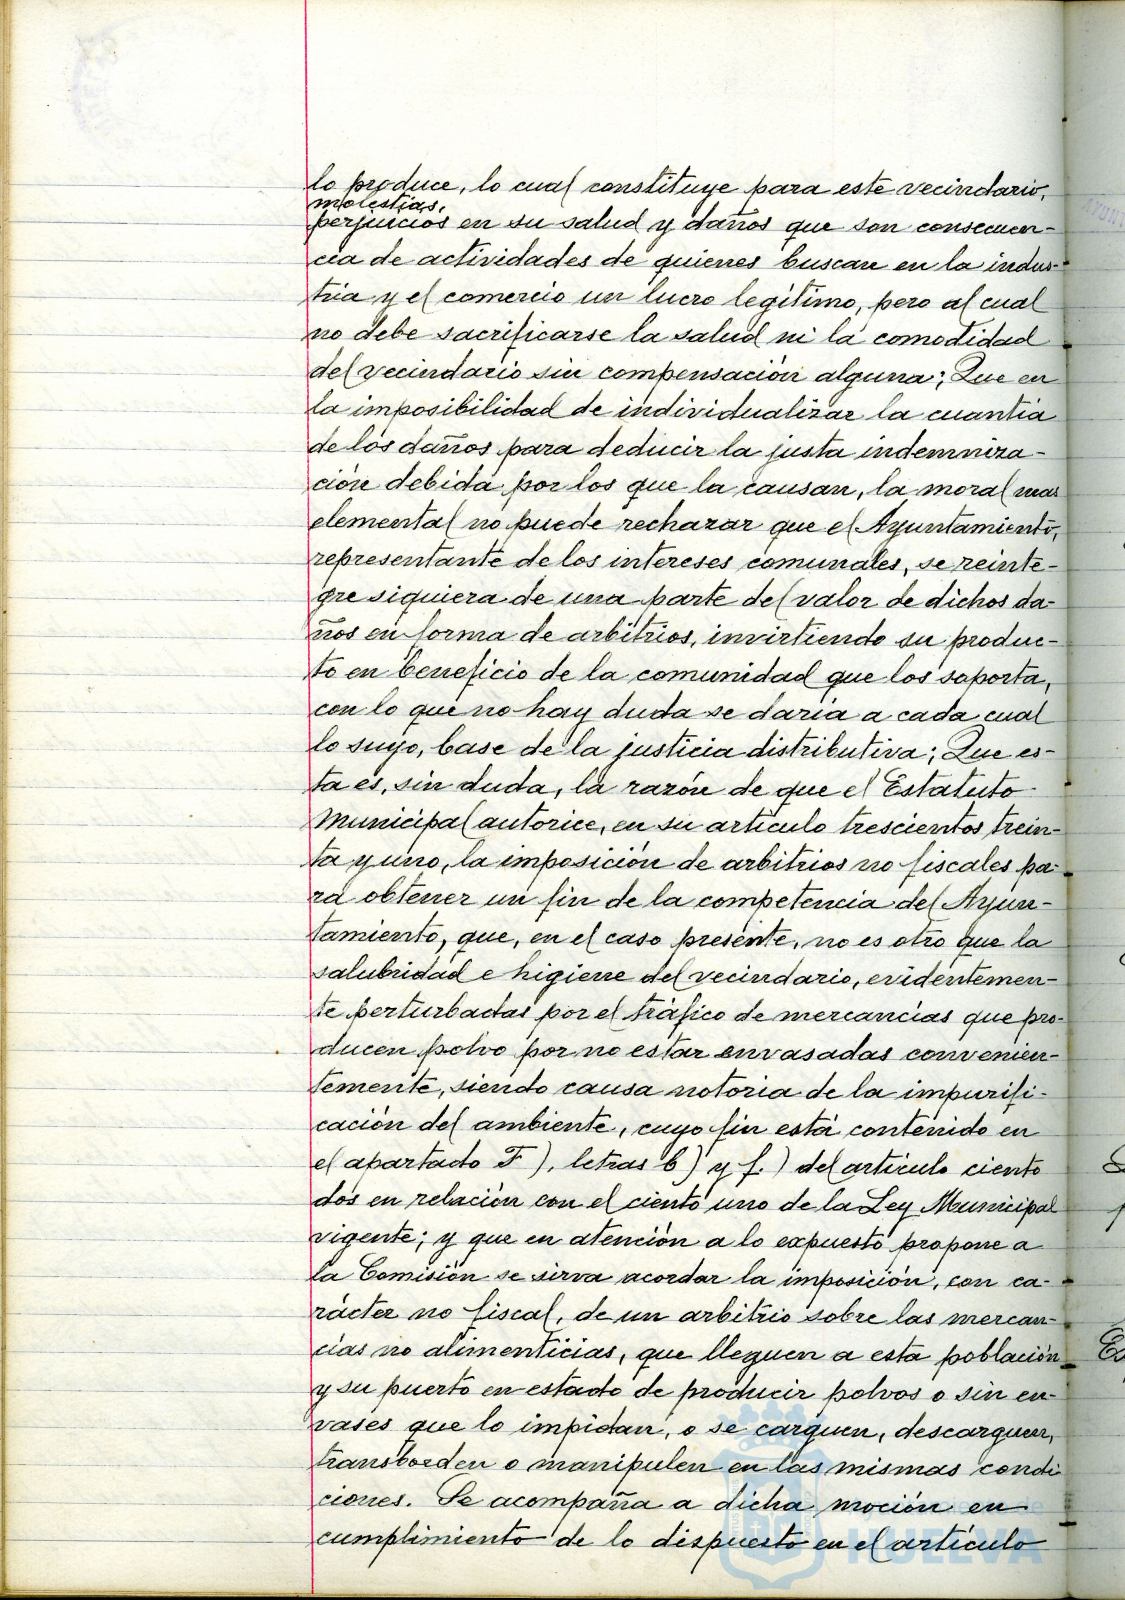 lo produce, lo cual constituye para este vecindario,
molestias,
perjuicios en su salud y daños que son consecuen-
cia de actividades de quienes buscan en la indus-
tria y el comercio un lucro legítimo, pero al cual
no debe sacrificarse la salud ni la comodidad
del vecindario sin compensación alguna; Que en
la imposibilidad de individualizar la cuantía
de los daños para deducir la justa indemniza-
ción debida por los que la causan, la moral mas
elemental no puede rechazar que el Ayuntamiento,
representante de los intereses comunales, se reinte-
gre siquiera de una parte del valor de dichos da-
ños en forma de arbitrios, invirtiendo su produc-
to en beneficio de la comunidad que los soporta,
con lo que no hay duda se daría a cada cual
lo suyo, base de la justicia distributiva; Que es-
ta es, sin duda, la razón de que el Estatuto
Municipal autorice, en su artículo trescientos trein-
ta y uno, la imposición de arbitrios no fiscales pa-
ra obtener un fin de la competencia del Ayun-
tamiento, que, en el caso presente, no es otro que la
salubridad e higiene del vecindario, evidentemen-
te perturbadas por el tráfico de mercancías que pro-
ducen polvo por no estar envasadas convenien-
temente, siendo causa notoria de la impurifi-
cación del ambiente, cuyo fin está contenido en
el apartado F), letras b) y f.) del artículo ciento
dos en relación con el ciento uno de la Ley Municipal
vigente; y que en atención a lo expuesto propone a
la Comisión se sirva acordar la imposición, con ca-
rácter no fiscal, de un arbitrio sobre las mercan-
cías no alimenticias, que lleguen a esta población
y su puerto en estado de producir polvos o sin en-
vases que lo impidan, o se carguen, descarguen,
transborden o manipulen en las mismas condi
ciones. Se acompaña a dicha moción en
cumplimiento de lo dispuesto en el artículo
HUELVA